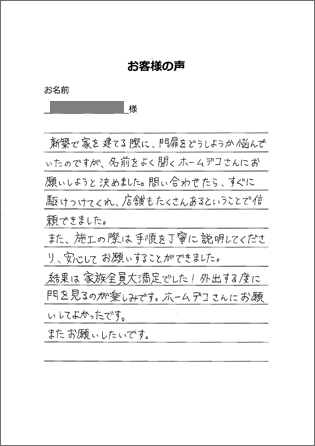 お客様の声
お名前
様
新築で家を建てる際に、門扉をどうしようか悩んで
いたのですが、名前をよく聞くホームデコさんにお
願いしようと決めました。問い合わせたら、すぐに
駆けつけてくれ、店舗もたくさんあるということで信
頼できました。
また、施工の際は手順を丁寧に説明してくださ
り、安心してお願いすることができました。
結果は家族全員大満足でした！外出する度に
門を見るのが楽しみです。ホームデコさんにお願
いしてよかったです。
またお願いしたいです。